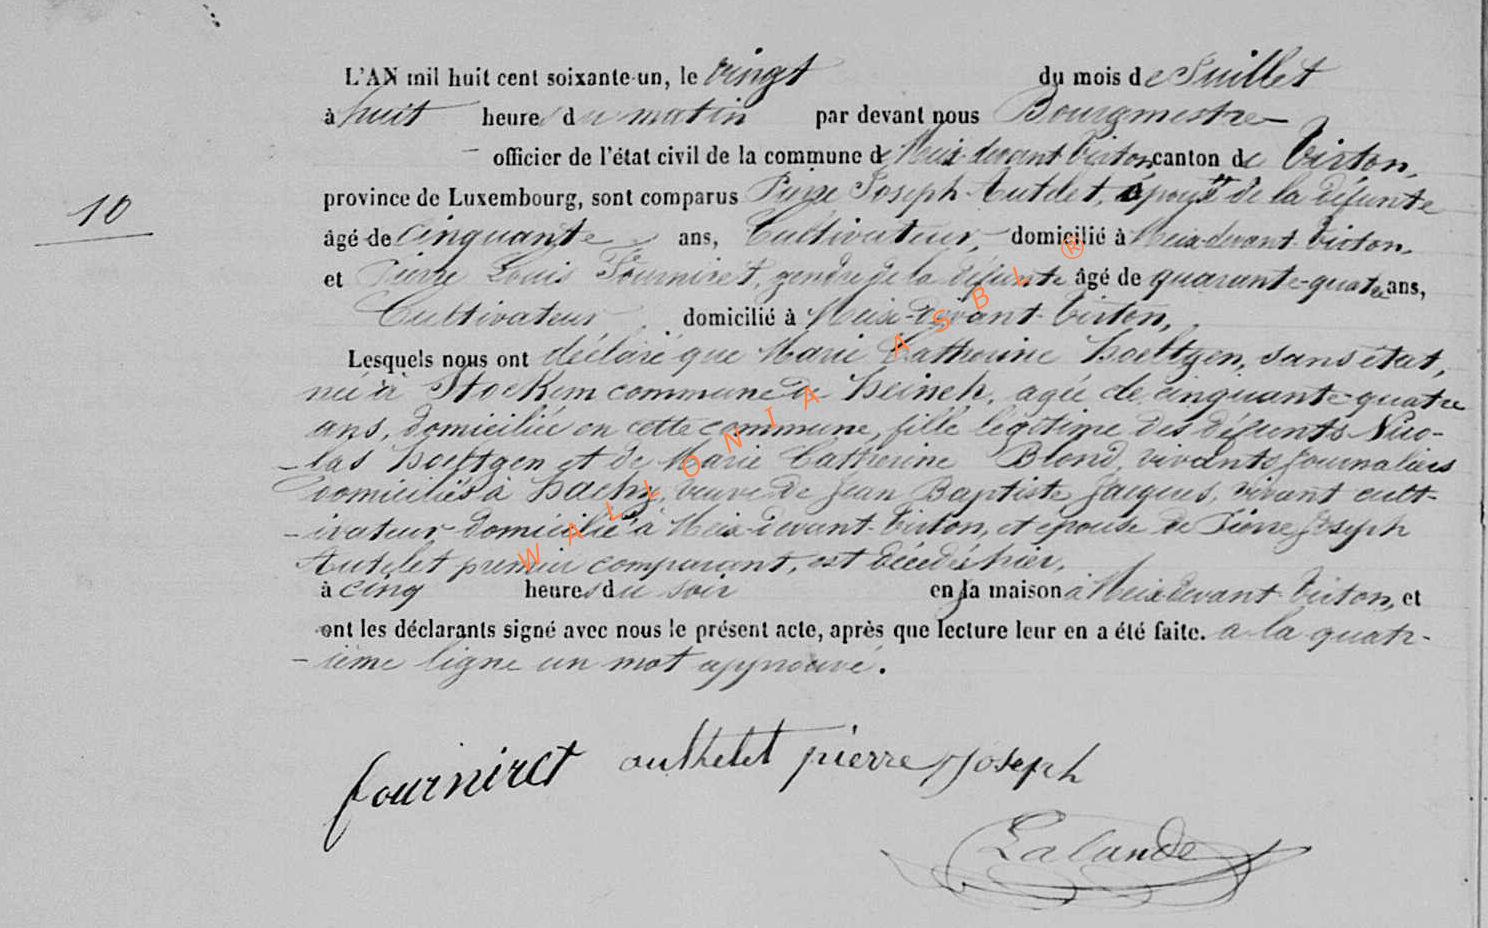 L'AN mil huit cent soixante-un, le vingt du mois de Juillet
à huit heures du matin par devant nous Bourgmestre
officier de l'état civil de la commune de Meix-devant-Virton, canton de Virton,
10
province de Luxembourg, sont comparus Pierre Joseph Autelet, époux de la défunte
âgé de cinquante ans, Cultivateur, domicilié à Meix-devant-Virton,
et Pierre Louis Fourniret, gendre de la défunte âgé de quarante-quatre ans,
Cultivateur domicilié à Meix-devant-Virton,
Lesquels nous ont déclaré que Marie Catherine Hoeltgen, sans état,
née à Stockem commune de Heinch, agée de cinquante-quatre
ans, domiciliée en cette commune, fille légitime des défunts Nico-
-las Hoeltgen et de Marie Catherine Blond, vivants journaliers
domiciliés à Hachy, veuve de Jean Baptiste Jacques, vivant cult-
-ivateur domicilié à Meix-devant-Virton, et épouse de Pierre Joseph
Autelet premier comparant, est décédée hier,
à cinq heures du soir en la maison à Meix-devant-Virton, et
ont les déclarants signé avec nous le présent acte, après que lecture leur en a été faite. a la quatr-
-ième ligne un mot approuvé.
fourniret authelet pierre joseph
Lalande
WALLONIA ASBL ®